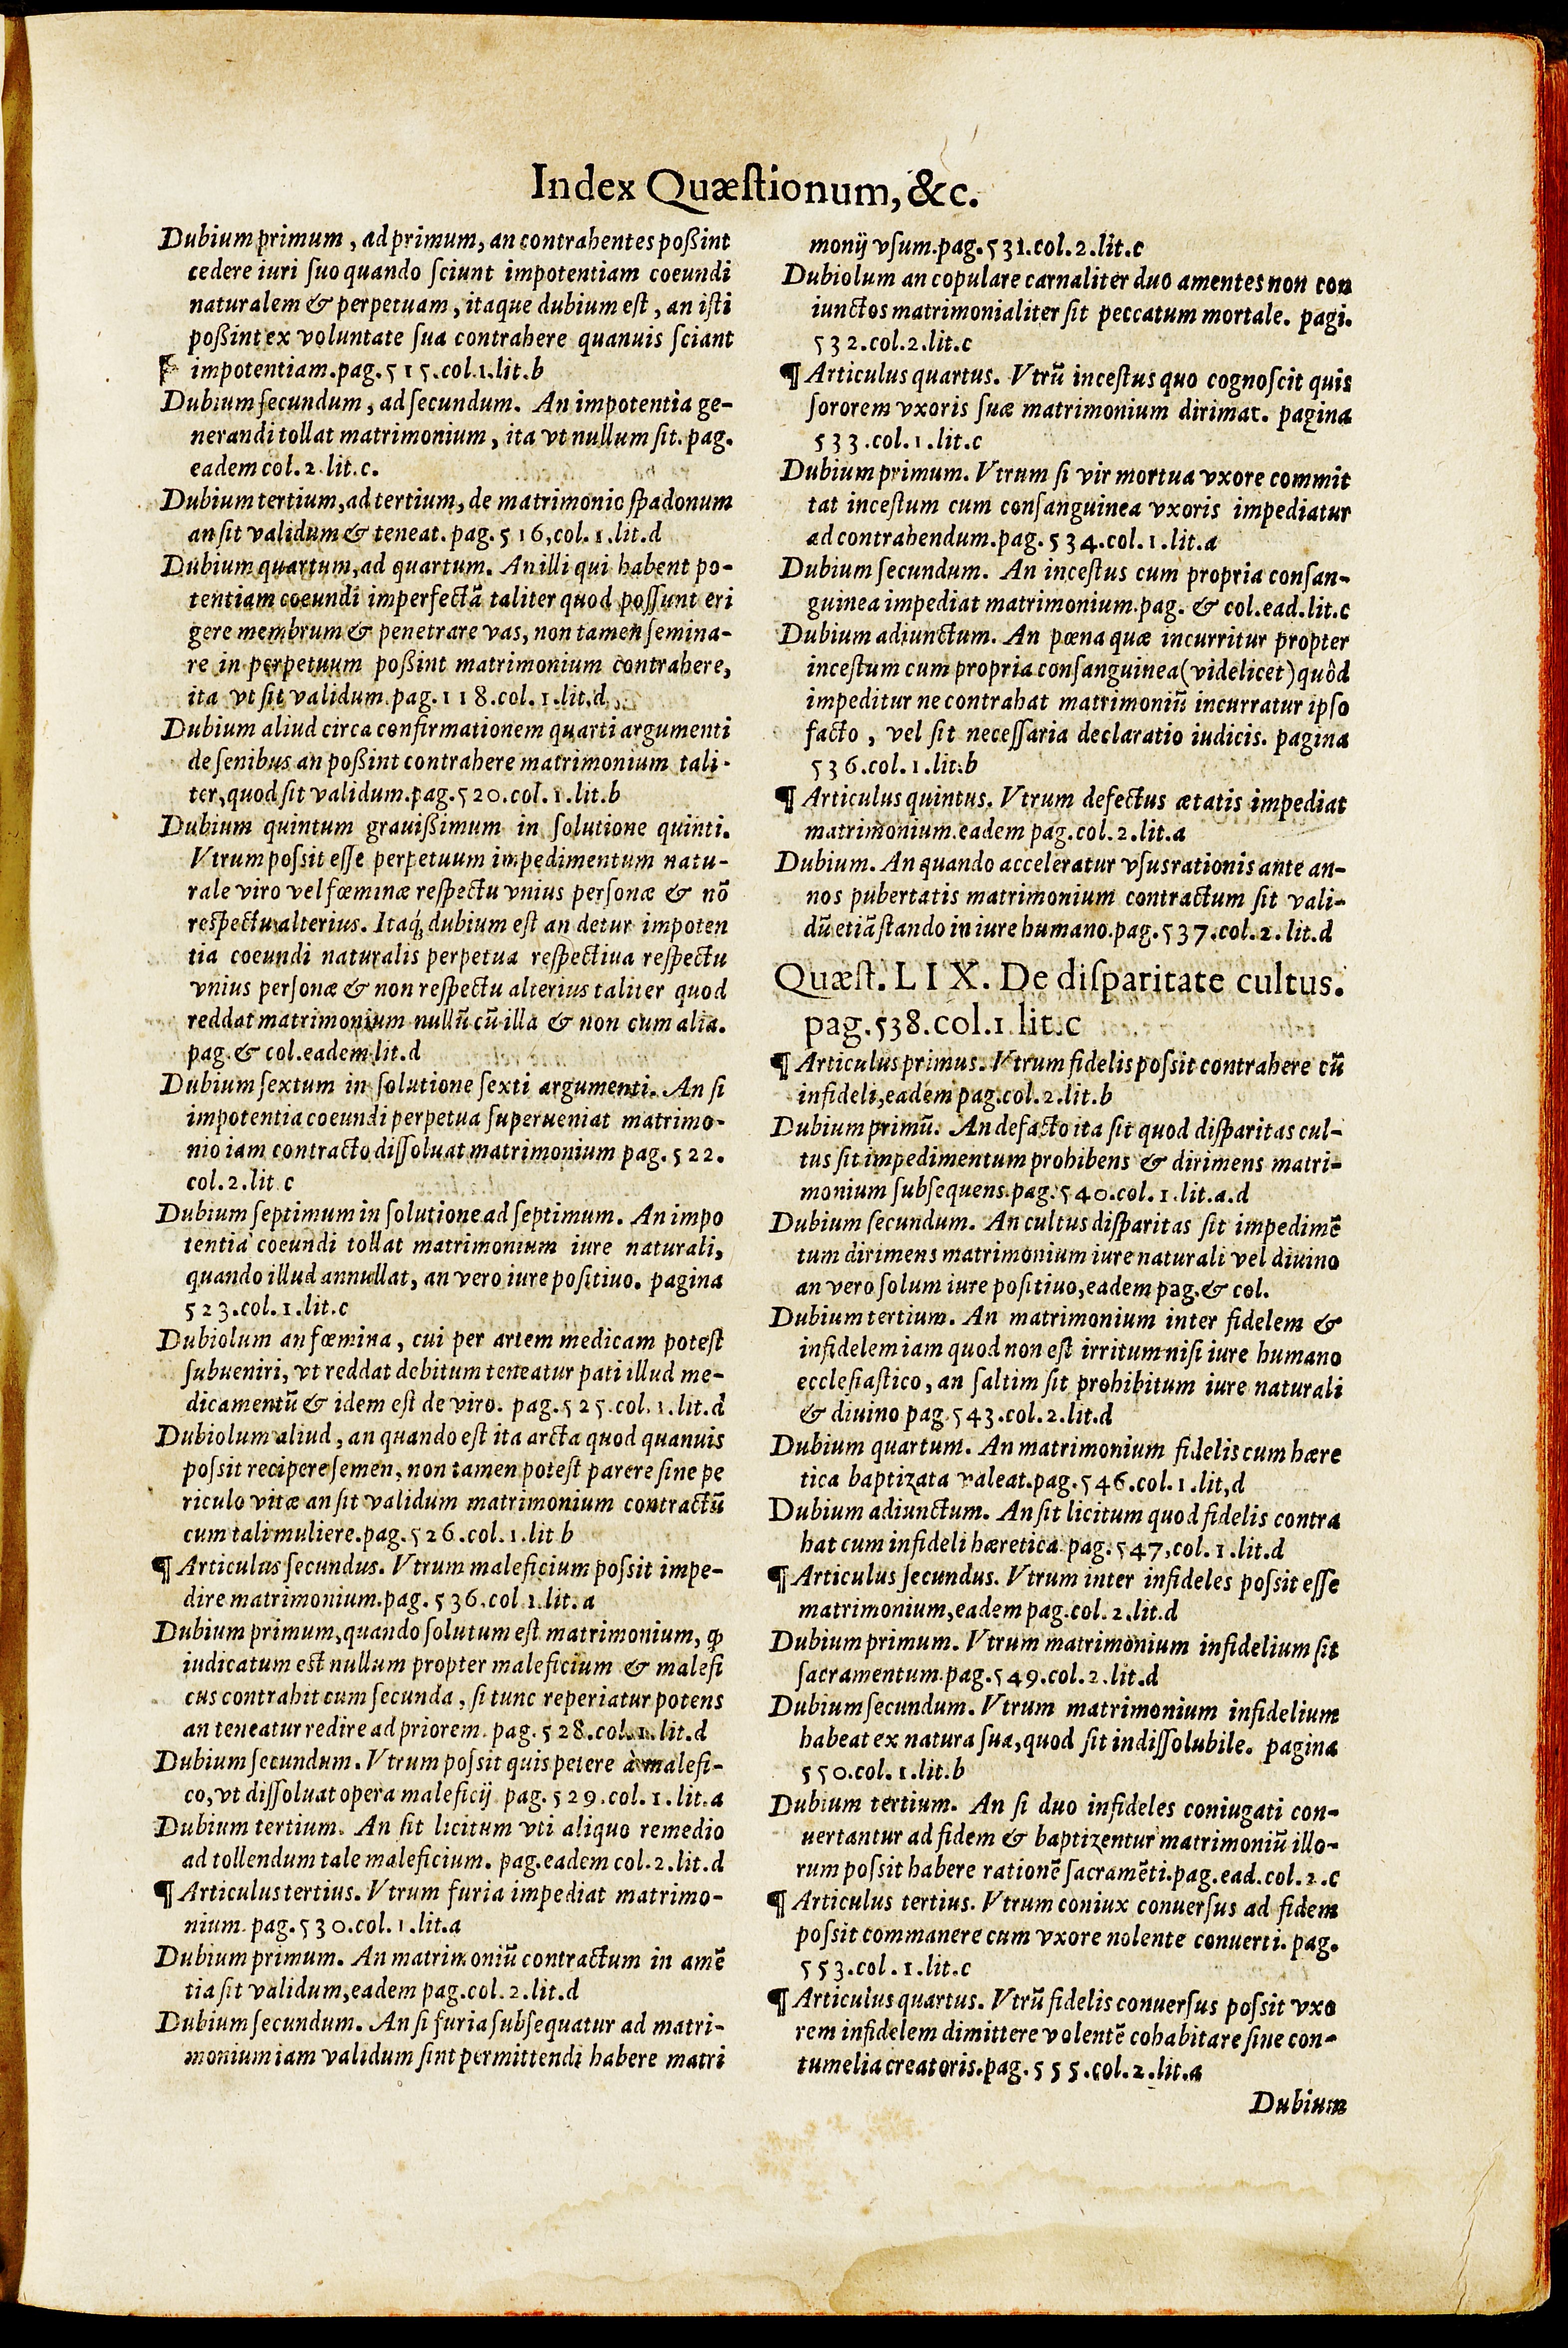 Index Quæſtionum, &c.
Dubium primum, ad primum, an contrahentes poßint
cedere iuri ſuo quando ſciunt impotentiam coeundi
naturalem & perpetuam, itaque dubium eſt, an iſti
poßint ex voluntate ſua contrahere quanuis ſciant
impotentiam.pag.515.col.1.lit.b
Dubium ſecundum, ad ſecundum. An impotentia ge-
nerandi tollat matrimonium, ita vt nullum ſit. pag.
eadem col.2.lit.c.
Dubium tertium, ad tertium, de matrimonio ſpadonum
an ſit validum & teneat. pag. 516, col. 1.lit.d
Dubium quartum, ad quartum. An illi qui habent po-
tentiam coeundi imperfectã taliter quod poſſunt eri
gere membrum & penetrare vas, non tamen ſemina-
re in perpetuum poßint matrimonium contrahere,
ita vt ſit validum.pag.118.col.1.lit.d
Dubium aliud circa confirmationem quarti argumenti
de ſenibus an poßint contrahere matrimonium tali-
ter, quod ſit validum.pag.520.col.1.lit.b
Dubium quintum grauißimum in ſolutione quinti.
Vtrum poſsit eſſe perpetuum impedimentum natu-
rale viro vel fœminæ reſpectu vnius perſonæ & nõ
reſpectu alterius. Itaq́; dubium eſt an detur impoten
tia coeundi naturalis perpetua reſpectiua reſpectu
vnius perſonæ & non reſpectu alterius taliter quod
reddat matrimonium nullũ cũ illa & non cum alia.
pag.& col.eadem lit.d
Dubium ſextum in ſolutione ſexti argumenti. An ſi
impotentia coeundi perpetua ſuperueniat matrimo-
nio iam contracto diſſoluat matrimonium pag.522.
col.2.lit c
Dubium ſeptimum in ſolutione ad ſeptimum. An impo
tentia coeundi tollat matrimonium iure naturali,
quando illud annullat, an vero iure poſitiuo. pagina
523.col.1.lit.c
Dubiolum an fœmina, cui per artem medicam poteſt
ſubueniri, vt reddat debitum teneatur pati illud me-
dicamentũ & idem eſt de viro. pag.525.col.1.lit.d
Dubiolum aliud, an quando eſt ita arcta quod quanuis
poſsit recipere ſemen, non tamen poteſt parere ſine pe
riculo vitæ an ſit validum matrimonium contractũ
cum tali muliere.pag.526.col.1.lit b
¶ Articulus ſecundus. Vtrum maleficium poſsit impe-
dire matrimonium.pag. 536.col 1.lit. a
Dubium primum, quando ſolutum eſt matrimonium, ꝙ
iudicatum eſt nullum propter maleficium & malefi
cus contrahit cum ſecunda, ſi tunc reperiatur potens
an teneatur redire ad priorem. pag. 528.col.1.lit.d
Dubium ſecundum. Vtrum poſsit quis petere à malefi-
co, vt diſſoluat opera maleficij pag. 529.col.1.lit.a
Dubium tertium. An ſit licitum vti aliquo remedio
ad tollendum tale maleficium. pag.eadem col.2.lit.d
¶ Articulus tertius. Vtrum furia impediat matrimo-
nium. pag.530.col.1.lit.a
Dubium primum. An matrimoniũ contractum in amẽ
tia ſit validum, eadem pag.col.2.lit.d
Dubium ſecundum. An ſi furia ſubſequatur ad matri-
monium iam validum ſint permittendi habere matri
monij vſum.pag.531.col.2.lit.c
Dubiolum an copulare carnaliter duo amentes non con
iunctos matrimonialiter ſit peccatum mortale. pagi.
532.col.2.lit.c
¶ Articulus quartus. Vtrũ inceſtus quo cognoſcit quis
ſororem vxoris ſuæ matrimonium dirimat. pagina
533.col.1.lit.c
Dubium primum. Vtrum ſi vir mortua vxore commit
tat inceſtum cum conſanguinea vxoris impediatur
ad contrahendum.pag. 534.col.1.lit.a
Dubium ſecundum. An inceſtus cum propria conſan-
guinea impediat matrimonium.pag. & col.ead.lit.c
Dubium adiunctum. An pœna quæ incurritur propter
inceſtum cum propria conſanguinea (videlicet) quòd
impeditur ne contrahat matrimoniũ incurratur ipſo
facto, vel ſit neceſſaria declaratio iudicis. pagina
536.col.1.lit.b
¶ Articulus quintus. Vtrum defectus ætatis impediat
matrimonium.eadem pag.col.2.lit.a
Dubium. An quando acceleratur vſus rationis ante an-
nos pubertatis matrimonium contractum ſit vali-
dũ etiã ſtando in iure humano.pag.537.col.2.lit.d
Quæſt. LIX. De diſparitate cultus.
pag.538.col.1.lit.c
¶ Articulus primus. Vtrum fidelis poſsit contrahere cũ
infideli, eadem pag.col.2.lit.b
Dubium primũ. An de facto ita ſit quod diſparitas cul-
tus ſit impedimentum prohibens & dirimens matri-
monium ſubſequens.pag.540.col.1.lit.a.d
Dubium ſecundum. An cultus diſparitas ſit impedimẽ
tum dirimens matrimonium iure naturali vel diuino
an vero ſolum iure poſitiuo, eadem pag.& col.
Dubium tertium. An matrimonium inter fidelem &
infidelem iam quod non eſt irritum niſi iure humano
eccleſiaſtico, an ſaltim ſit prohibitum iure naturali
& diuino pag.543.col.2.lit.d
Dubium quartum. An matrimonium fidelis cum hære
tica baptizata valeat.pag.546.col.1.lit,d
Dubium adiunctum. An ſit licitum quod fidelis contra
hat cum infideli hæretica.pag.547,col.1.lit.d
¶ Articulus ſecundus. Vtrum inter infideles poſsit eſſe
matrimonium, eadem pag.col.2.lit.d
Dubium primum. Vtrum matrimonium infidelium ſit
ſacramentum.pag.549.col.2.lit.d
Dubium ſecundum. Vtrum matrimonium infidelium
habeat ex natura ſua, quod ſit indiſſolubile. pagina
550.col.1.lit.b
Dubium tertium. An ſi duo infideles coniugati con-
uertantur ad fidem & baptizentur matrimoniũ illo-
rum poſsit habere rationẽ ſacramẽti.pag.ead.col.2.c
¶ Articulus tertius. Vtrum coniux conuerſus ad fidem
poſsit commanere cum vxore nolente conuerti. pag.
553.col.1.lit.c
¶ Articulus quartus. Vtrũ fidelis conuerſus poſsit vxo
rem infidelem dimittere volentẽ cohabitare ſine con-
tumelia creatoris.pag.555.col.2.lit.a
Dubium